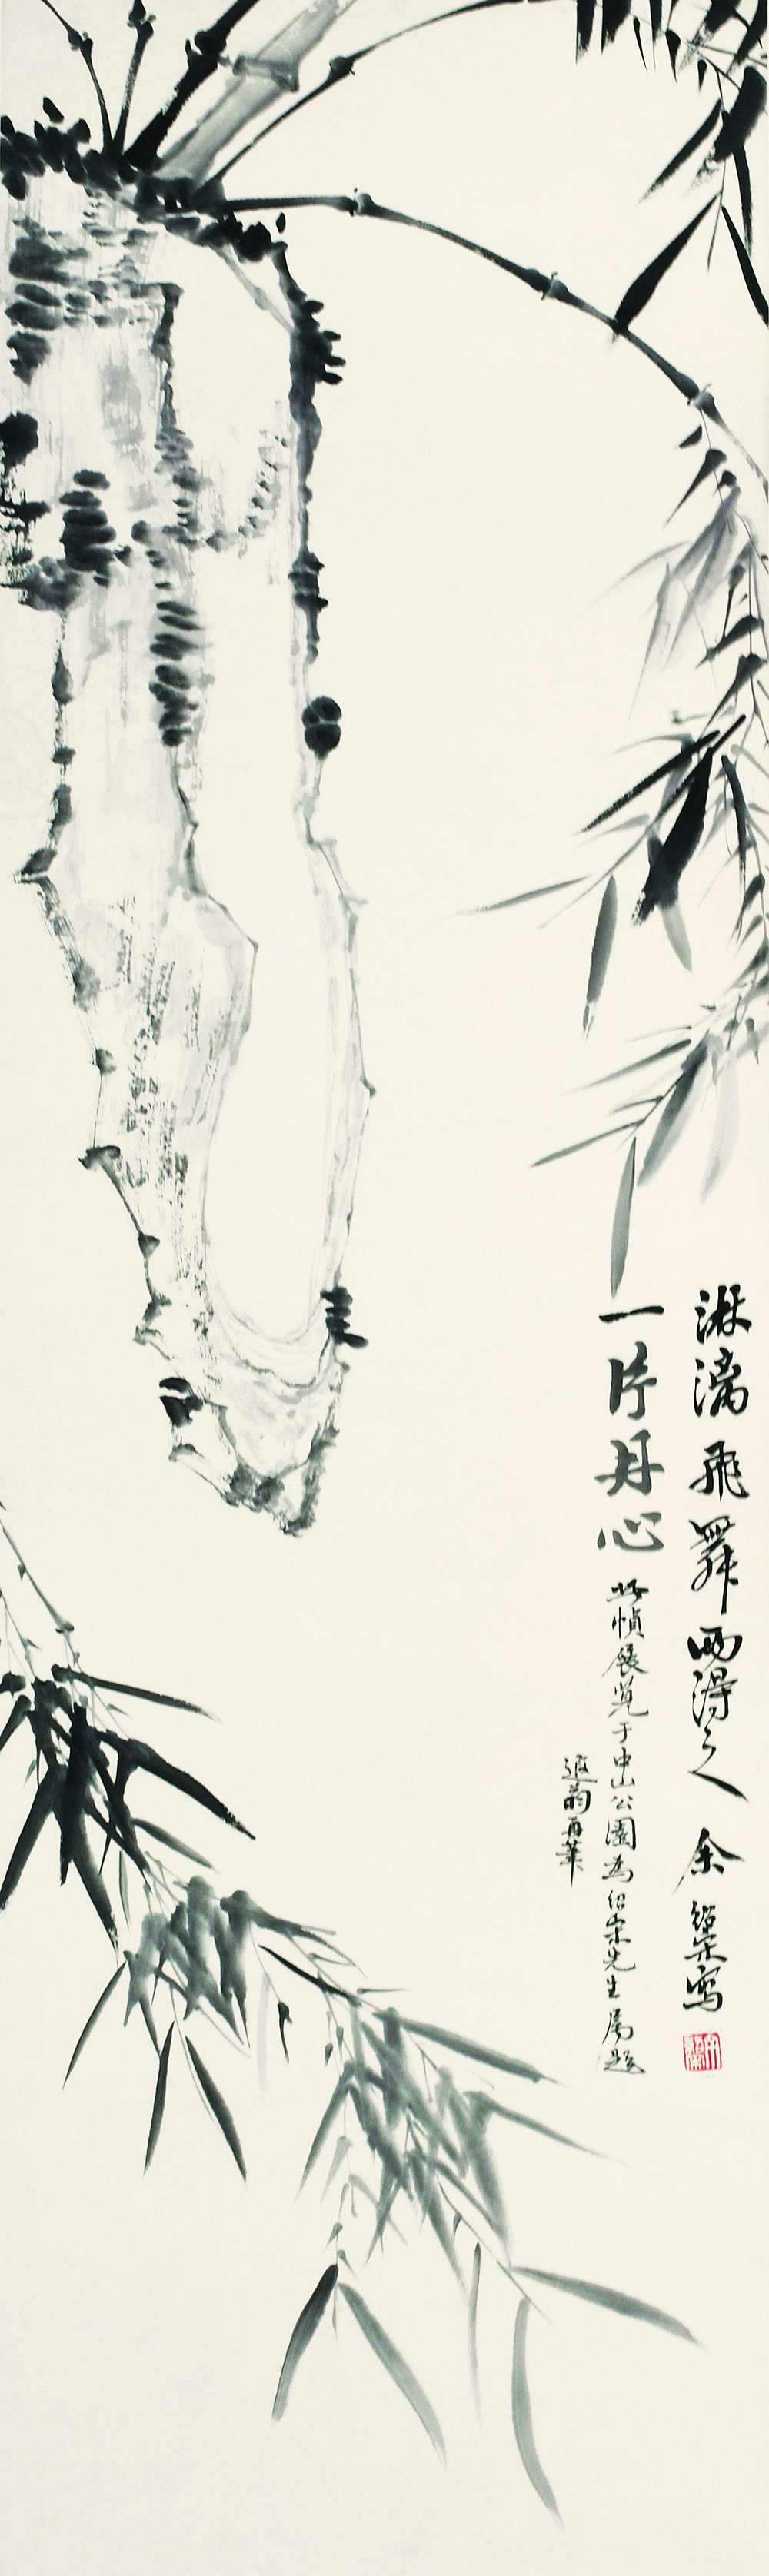 淋漓飛舞兩得之 余紹宋寫
一片丹心 此幀展覽于中山公園為紹宋先生屬題
遐翁再筆